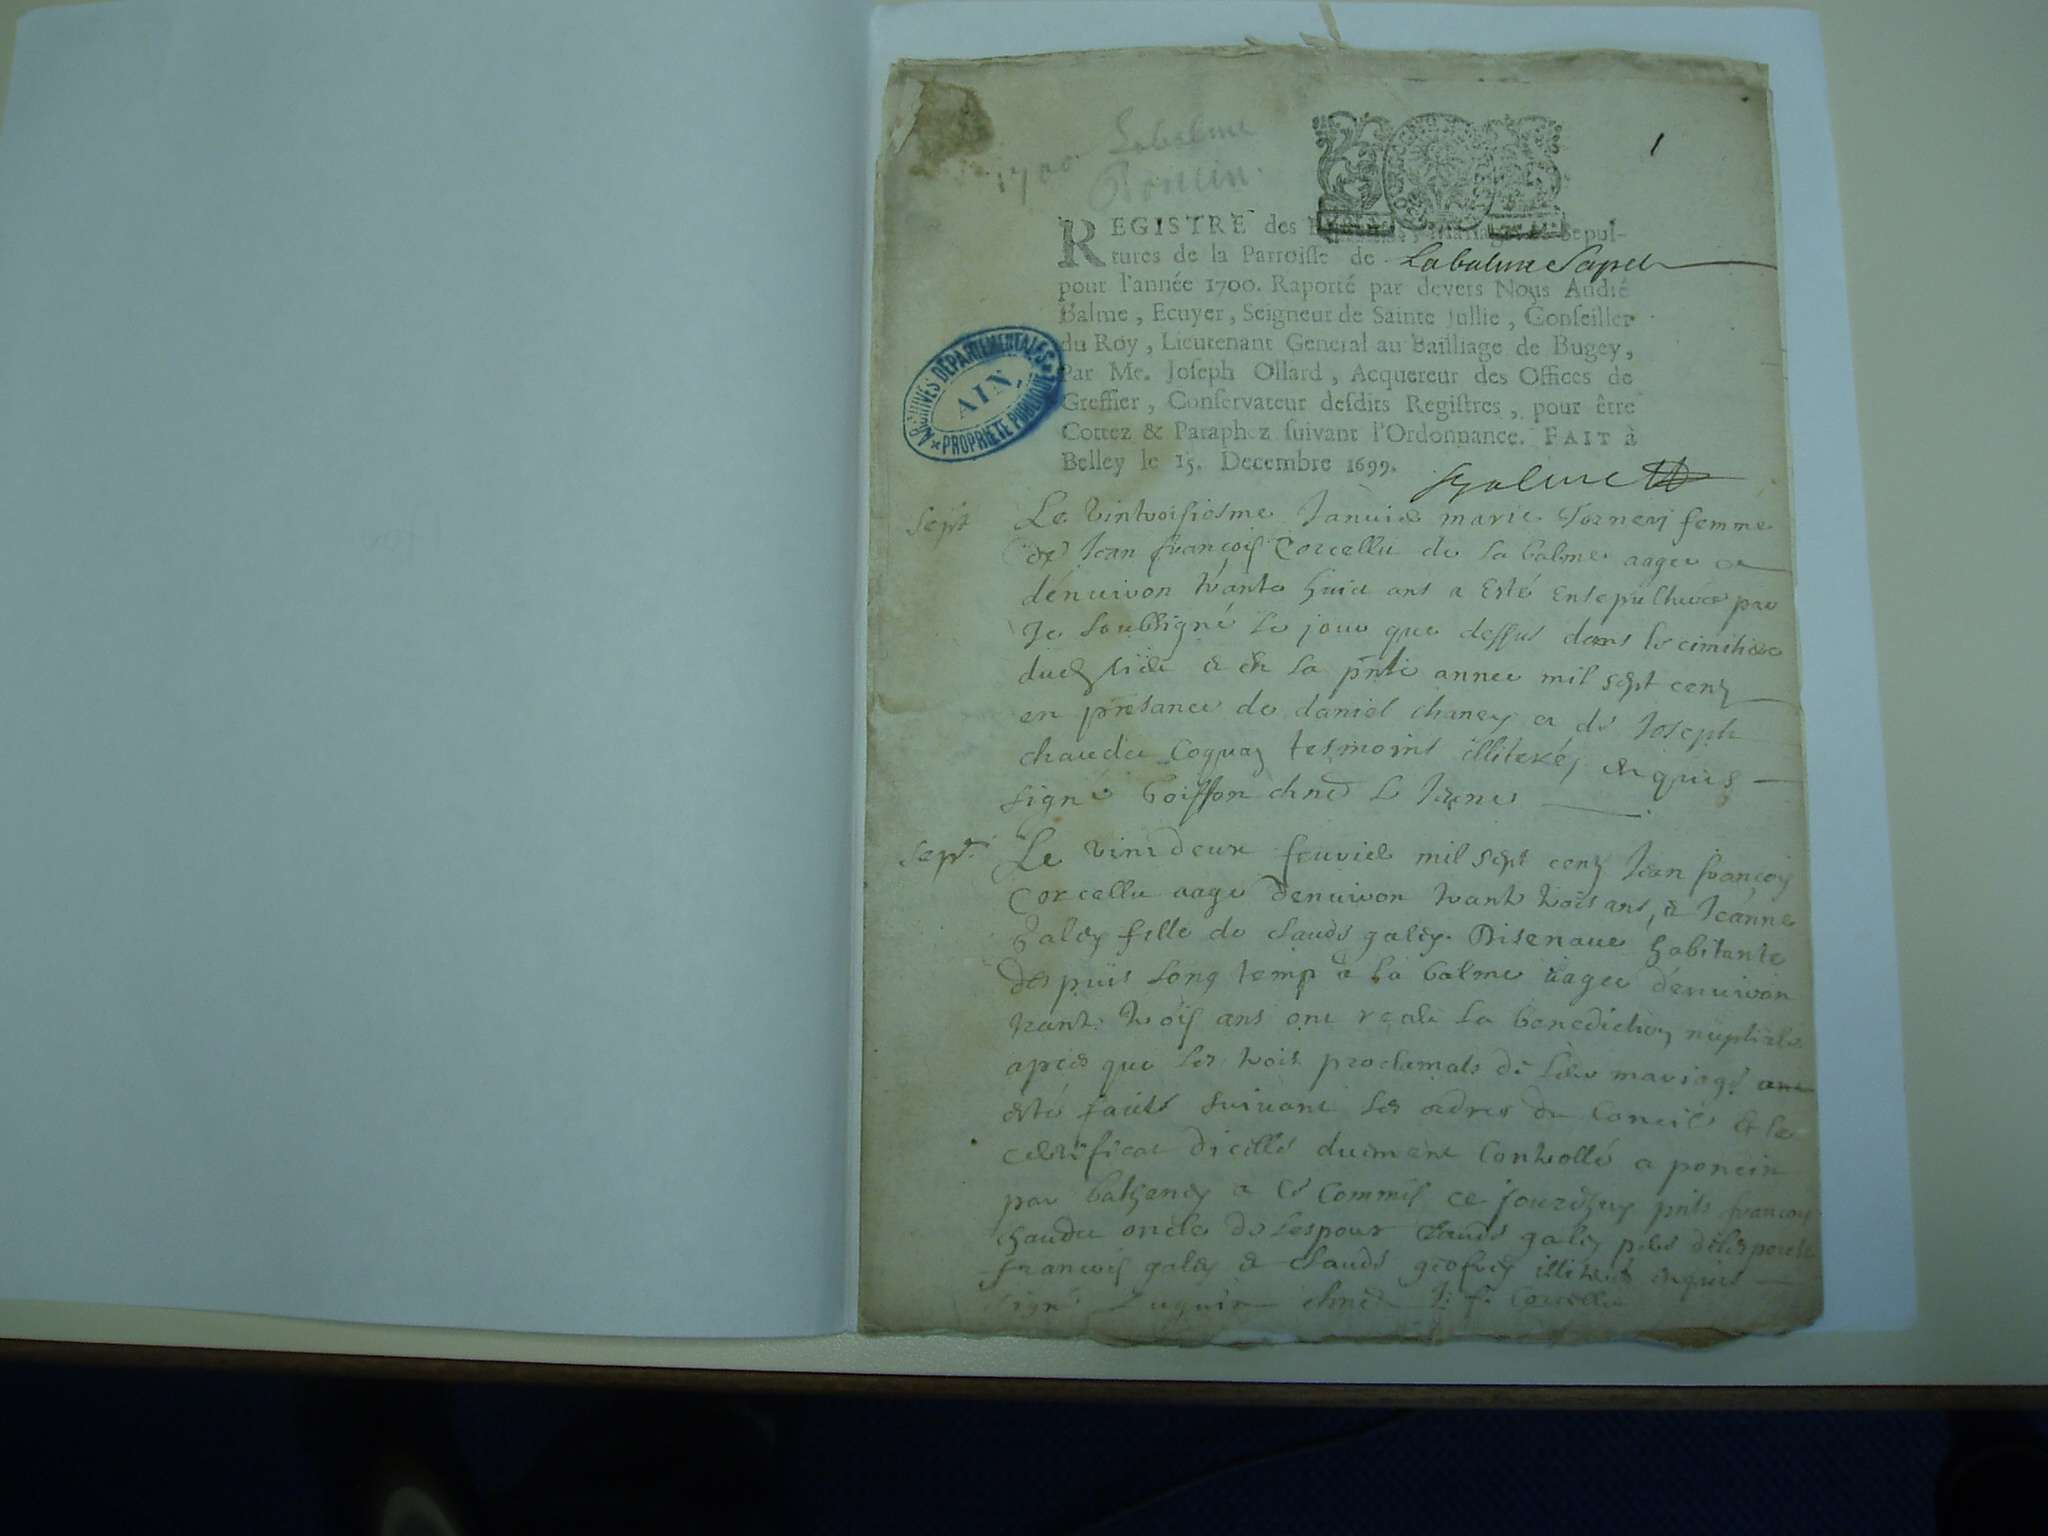 1700 Labalme
Poncin.
1
REGISTRE des Baptêmes, Mariages & Sepul-
tures de la Parroisse de Labalme Sapel
pour l'année 1700. Raporté par devers Nous André
Balme, Ecuyer, Seigneur de Sainte Jullie, Conseiller
du Roy, Lieutenant General au Bailliage de Bugey,
Par Me. Joseph Ollard, Acquereur des Offices de
Greffier, Conservateur desdits Registres, pour être
Cottez & Paraphez suivant l'Ordonnance. FAIT à
Belley le 15. Decembre 1699.
ARCHIVES DÉPARTEMENTALES
AIN
PROPRIÉTÉ PUBLIQUE
Sept Le vintroisiesme Janvier marie femme
de Jean françois Corcellu de la balme aagee
denuiron trante huict ans a Esté Ensepulturee par
Je soubsigné le jour que dessus dans le cimitiere
la pnte annee mil sept cens
en presance de daniel chaney et de Joseph
chaudu Coquaz tesmoins illiterés enquis
signé boisson
Sept. Le vint deux feuvrier mil sept cens Jean françois
Corcellu aage denuiron trante trois ans, & Jeanne
galey fille de claude galey habitante
des puis long temp a la balme aagee denuiron
trante trois ans ont receu la benediction nuptiale
apres que les trois proclamats de leur mariage ont
esté faicts suivant les ordres du Concile et le
certificat dicelle duement Controllé a poncin
par commis ce jourdhuy pnts françois
chaudu oncle de lespoux claude galey pere de lespouse
francois galey & claude geofrey illiterés enquis
signé J: f: Corcellu